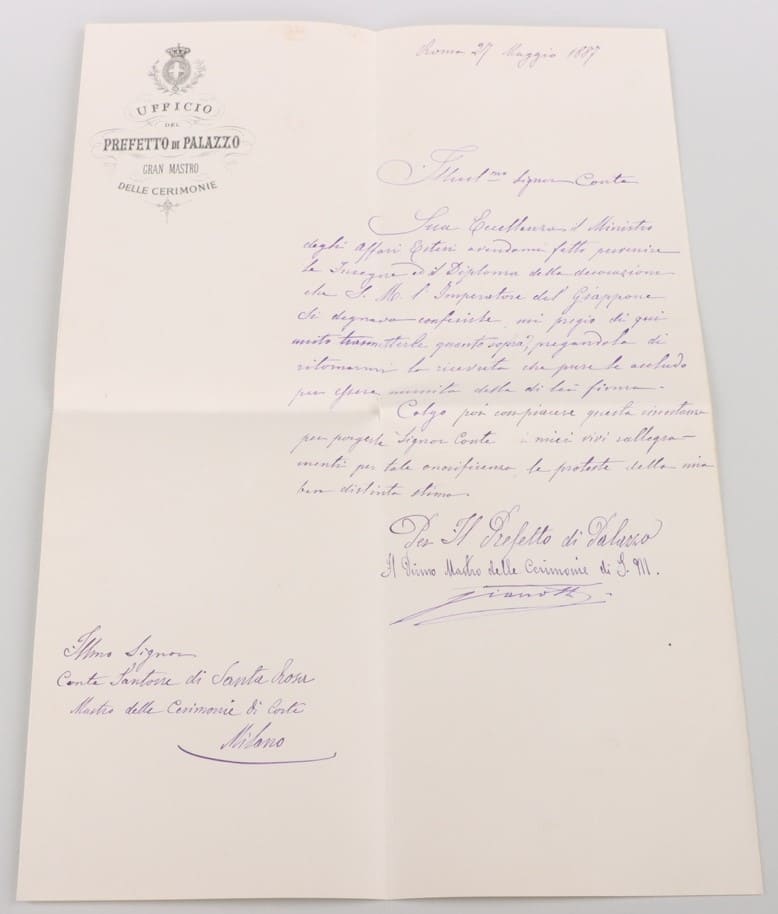 UFFICIO
DEL
PREFETTO DI PALAZZO
GRAN MASTRO
DELLE CERIMONIE
Roma 27 Maggio 1887
Illust.mo Signor Conte
Sua Eccellenza il Ministro
degli Affari Esteri avendomi fatto pervenire
le Insegne ed il Diploma della decorazione
che S. M. l'Imperatore del Giappone
si degnava conferirle, mi pregio di qui
unito trasmetterle quanto sopra, pregandola di
ritornarmi la ricevuta che pure le accludo
per essere munita della di Lei firma.
Colgo poi con piacere questa circostanza
per porgerle Signor Conte i miei vivi rallegra-
menti per tale onorificenza, le proteste della mia
ben distinta stima.
Per Il Prefetto di Palazzo
Il Primo Mastro delle Cerimonie di S. M.
Gianotti
Illmo Signor
Conte Santorre di Santa Rosa
Mastro delle Cerimonie di Corte
Milano